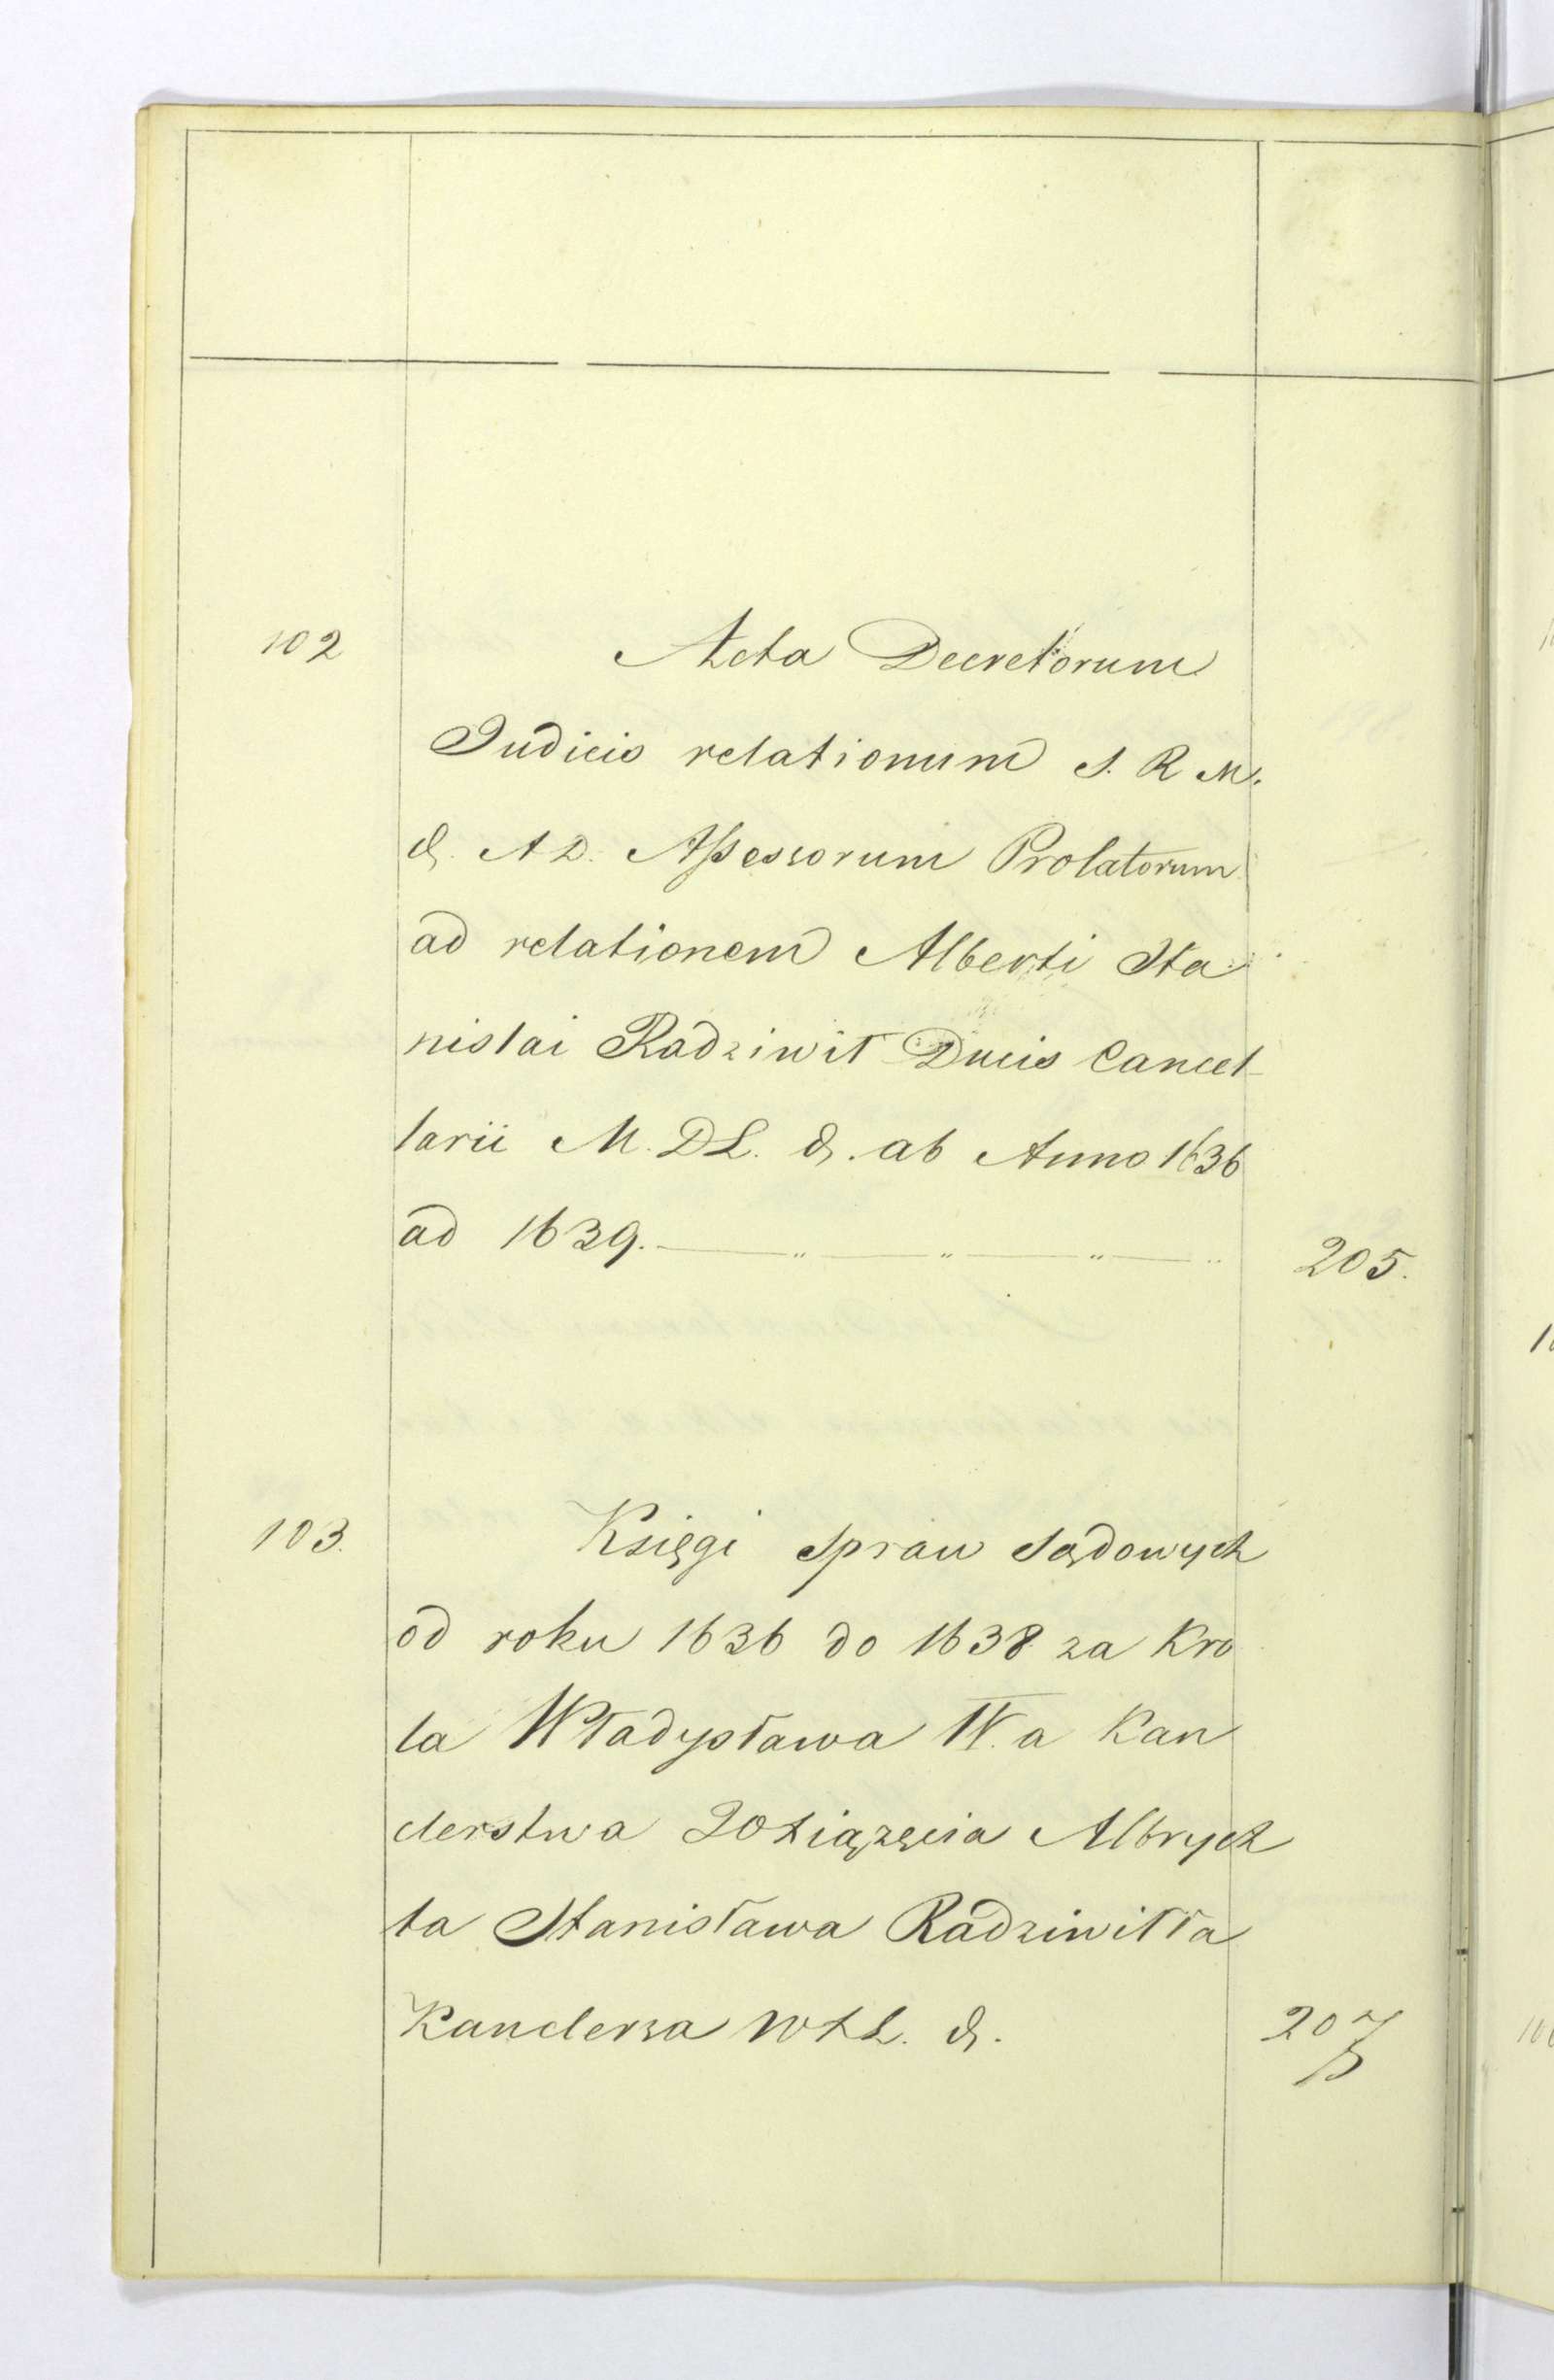 102 Acta Decretorum
Judicio relationum S. R M.
&. A D. Assessorum Prolatorum
ad relationem Alberti Sta
nislai Radziwił Ducis Cancel-
larii M. D L. &. ab Anno 1636
ad 1639. 205.
103. Księgi Spraw Sądowych
od roku 1636 do 1638 za Kro
la Władysława IV. a Kan
clerstwa Xiążęcia Albrych
ta Stanisława Radziwiłła
Kanclerza W X L. &. 207